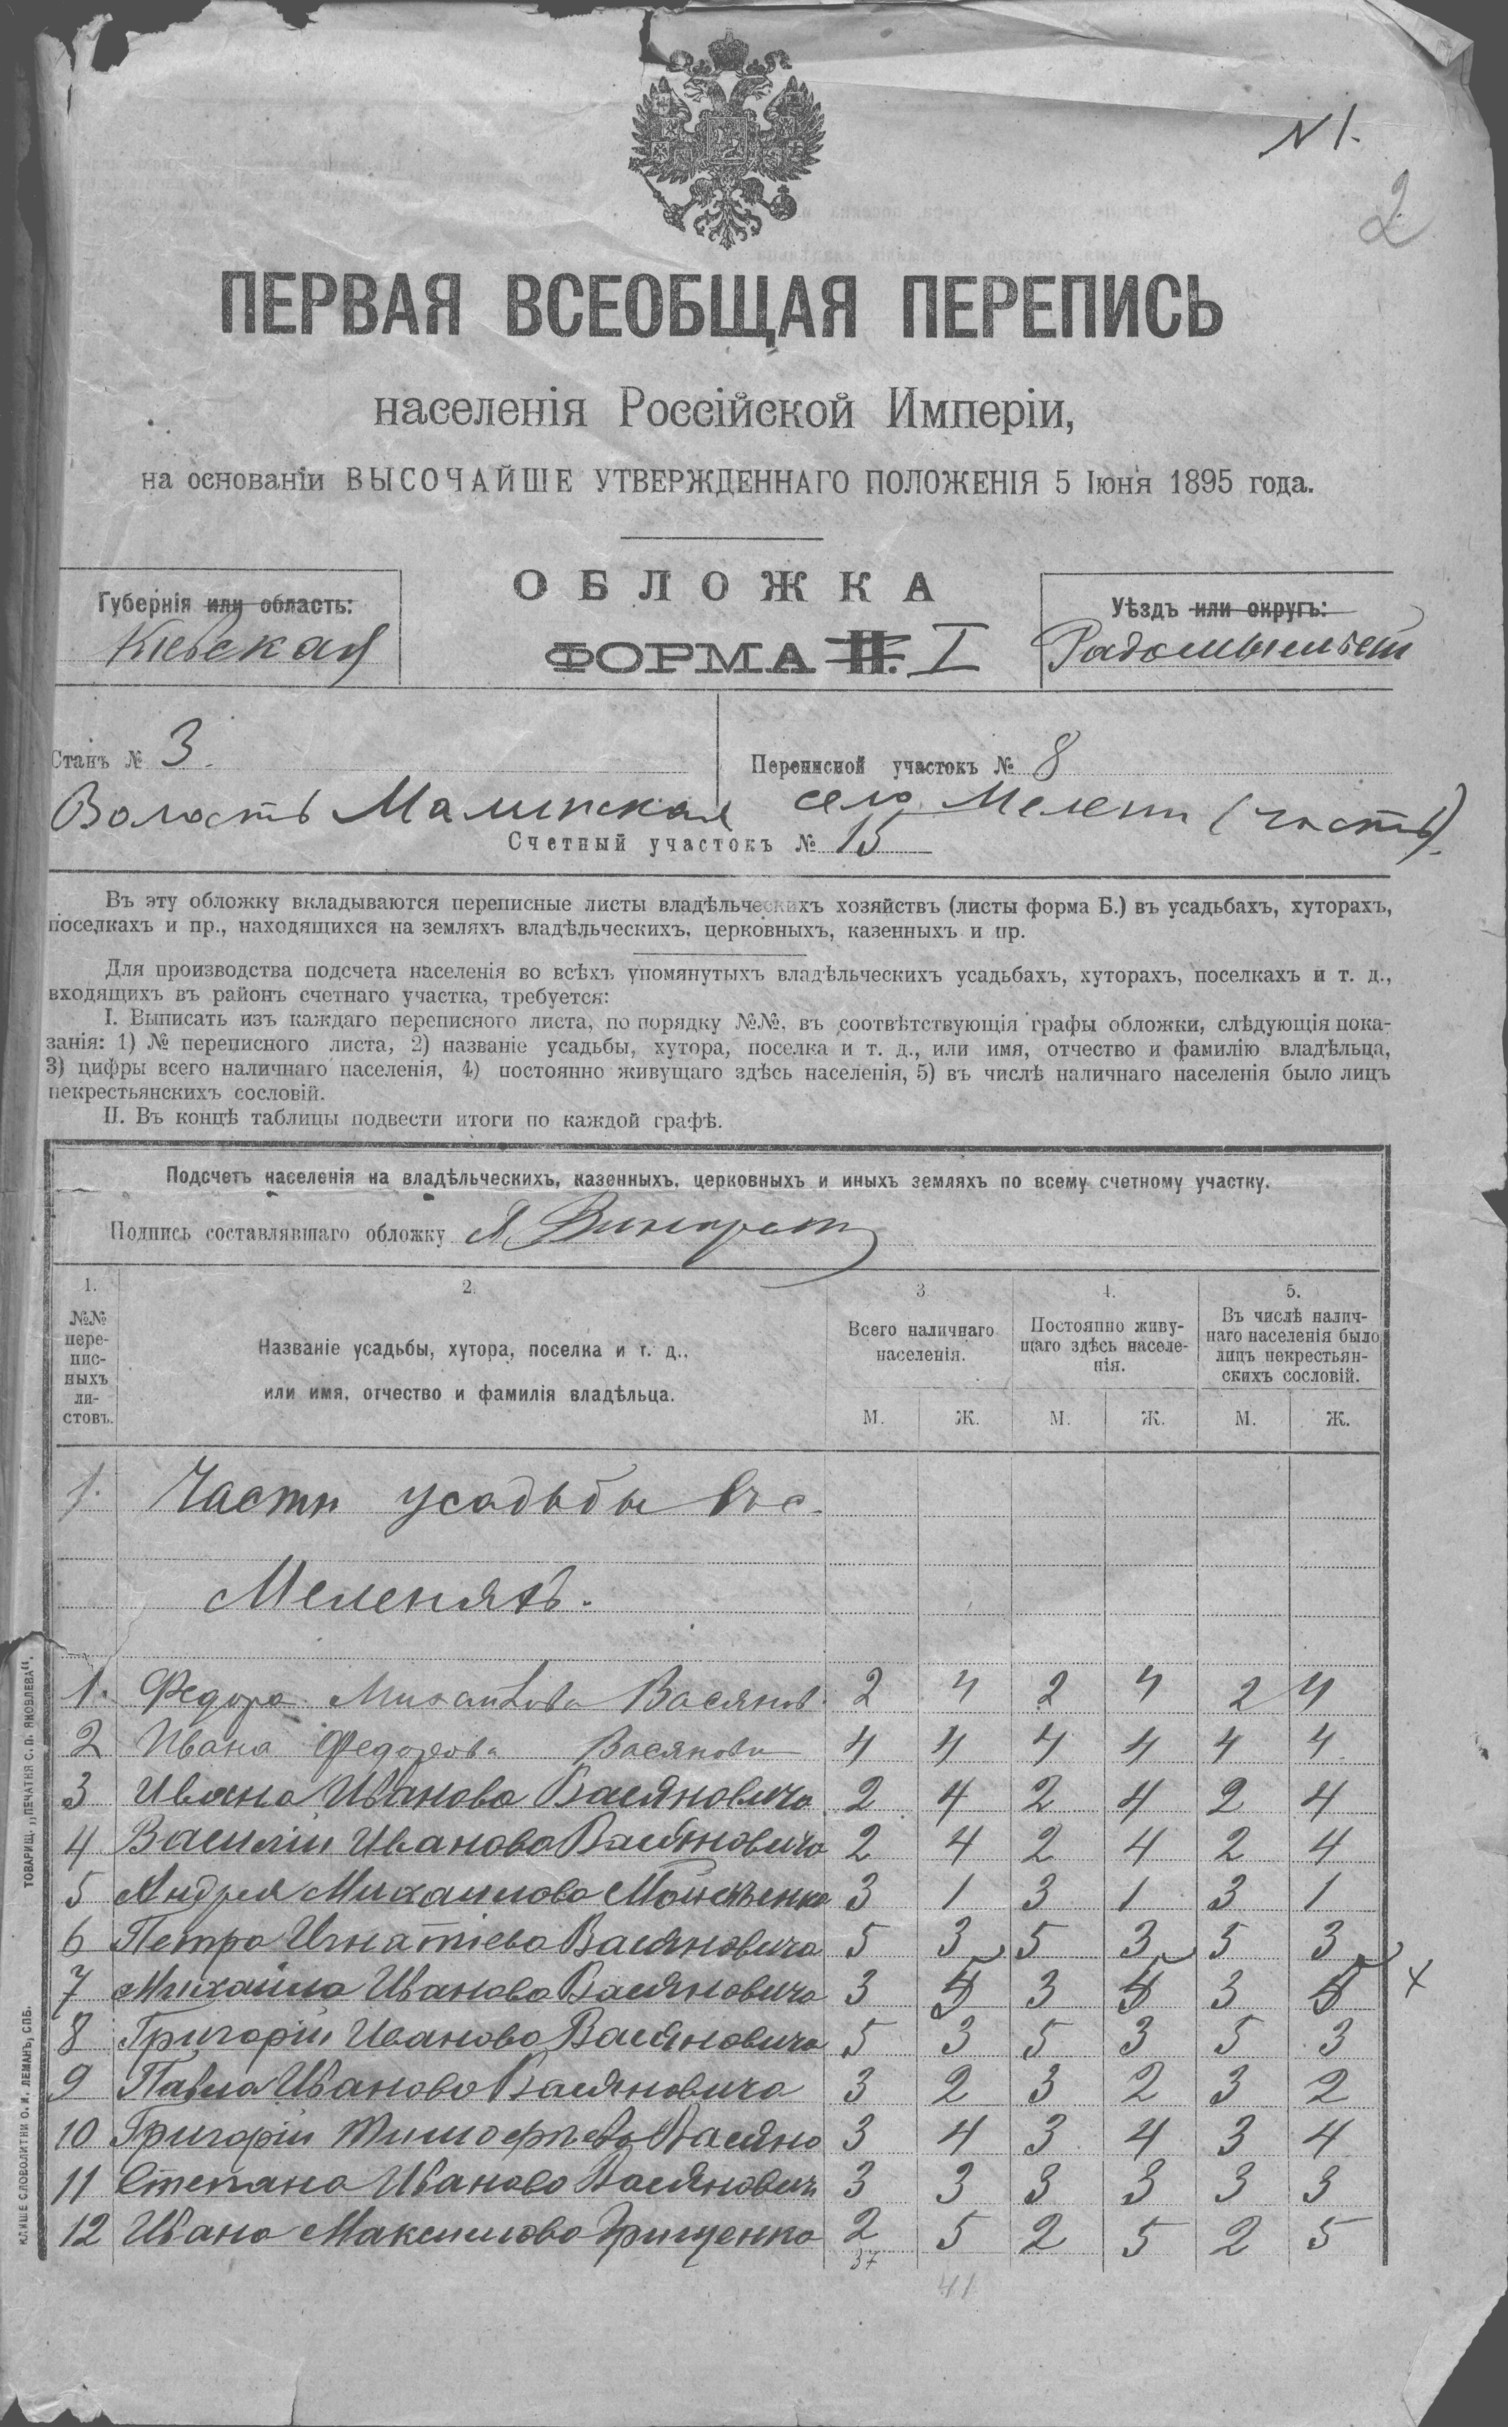 N 1.
2
ПЕРВАЯ ВСЕОБЩАЯ ПЕРЕПИСЬ
населенія Россійской Имперіи,
на основаніи ВЫСОЧАЙШЕ УТВЕРЖДЕННАГО ПОЛОЖЕНІЯ 5 Іюня 1895 года.
ОБЛОЖКА
Губернія или область:
Кіевская
ФОРМА II. I
Уѣздъ или округъ:
Радомысльскій
Станъ № 3.
Переписной участокъ № 8
Волость Малинская село Мелени (часть)
Счетный участокъ № 15
Въ эту обложку вкладываются переписные листы владѣльческихъ хозяйствъ (листы форма Б.) въ усадьбахъ, хуторахъ,
поселкахъ и пр., находящихся на земляхъ владѣльческихъ, церковныхъ, казенныхъ и пр.
Для производства подсчета населенія во всѣхъ упомянутыхъ владѣльческихъ усадьбахъ, хуторахъ, поселкахъ и т. д.,
входящихъ въ районъ счетнаго участка, требуется:
I. Выписать изъ каждаго переписного листа, по порядку №№, въ соотвѣтствующія графы обложки, слѣдующія пока-
занія: 1) № переписного листа, 2) названіе усадьбы, хутора, поселка и т. д., или имя, отчество и фамилію владѣльца,
3) цифры всего наличнаго населенія, 4) постоянно живущаго здѣсь населенія, 5) въ числѣ наличнаго населенія было лицъ
некрестьянскихъ сословій.
II. Въ концѣ таблицы подвести итоги по каждой графѣ.
Подсчетъ населенія на владѣльческихъ, казенныхъ, церковныхъ и иныхъ земляхъ по всему счетному участку.
Подпись составлявшаго обложку
1. 2. 3 4. 5.
№№ пере-
пис-
ныхъ
ли-
стовъ.
Названіе усадьбы, хутора, поселка и т. д.,
или имя, отчество и фамилія владѣльца.
Всего наличнаго
населенія.
Постоянно живу-
щаго здѣсь населе-
нія.
Въ числѣ налич-
наго населенія было
лицъ некрестьян-
скихъ сословій.
М. Ж. М. Ж. М. Ж.
1. Части усадьбы въ с.
Меленяхъ.
1. Федора Михайлова Васянов. 2 4 2 4 2 4
2 Ивана Федорова Васянови 4 4 4 4 4 4
3 Ивана Иванова Васяновича 2 4 2 4 2 4
4 Василія Иванова Васяновича 2 4 2 4 2 4
5 Андрея Михайлова 3 1 3 1 3 1
6 Петра Игнатіева Васяновича 5 3 5 3 5 3
7 Михаила Иванова Васяновича 3 5 3 5 3 5 +
8 Григорія Иванова Васяновича 5 3 5 3 5 3
9 Павла Иванова Васяновича 3 2 3 2 3 2
10 Григорія Тимофѣева Васяно 3 4 3 4 3 4
11 Степана Иванова Васянович 3 3 3 3 3 3
12 Ивана Максимова Грищенко 2 5 2 5 2 5
37
41
ТОВАРИЩ. „ПЕЧАТНЯ С. П. ЯКОВЛЕВА".
КЛИШЕ СЛОВОЛИТНИ О. И. ЛЕМАНЪ, СПБ.